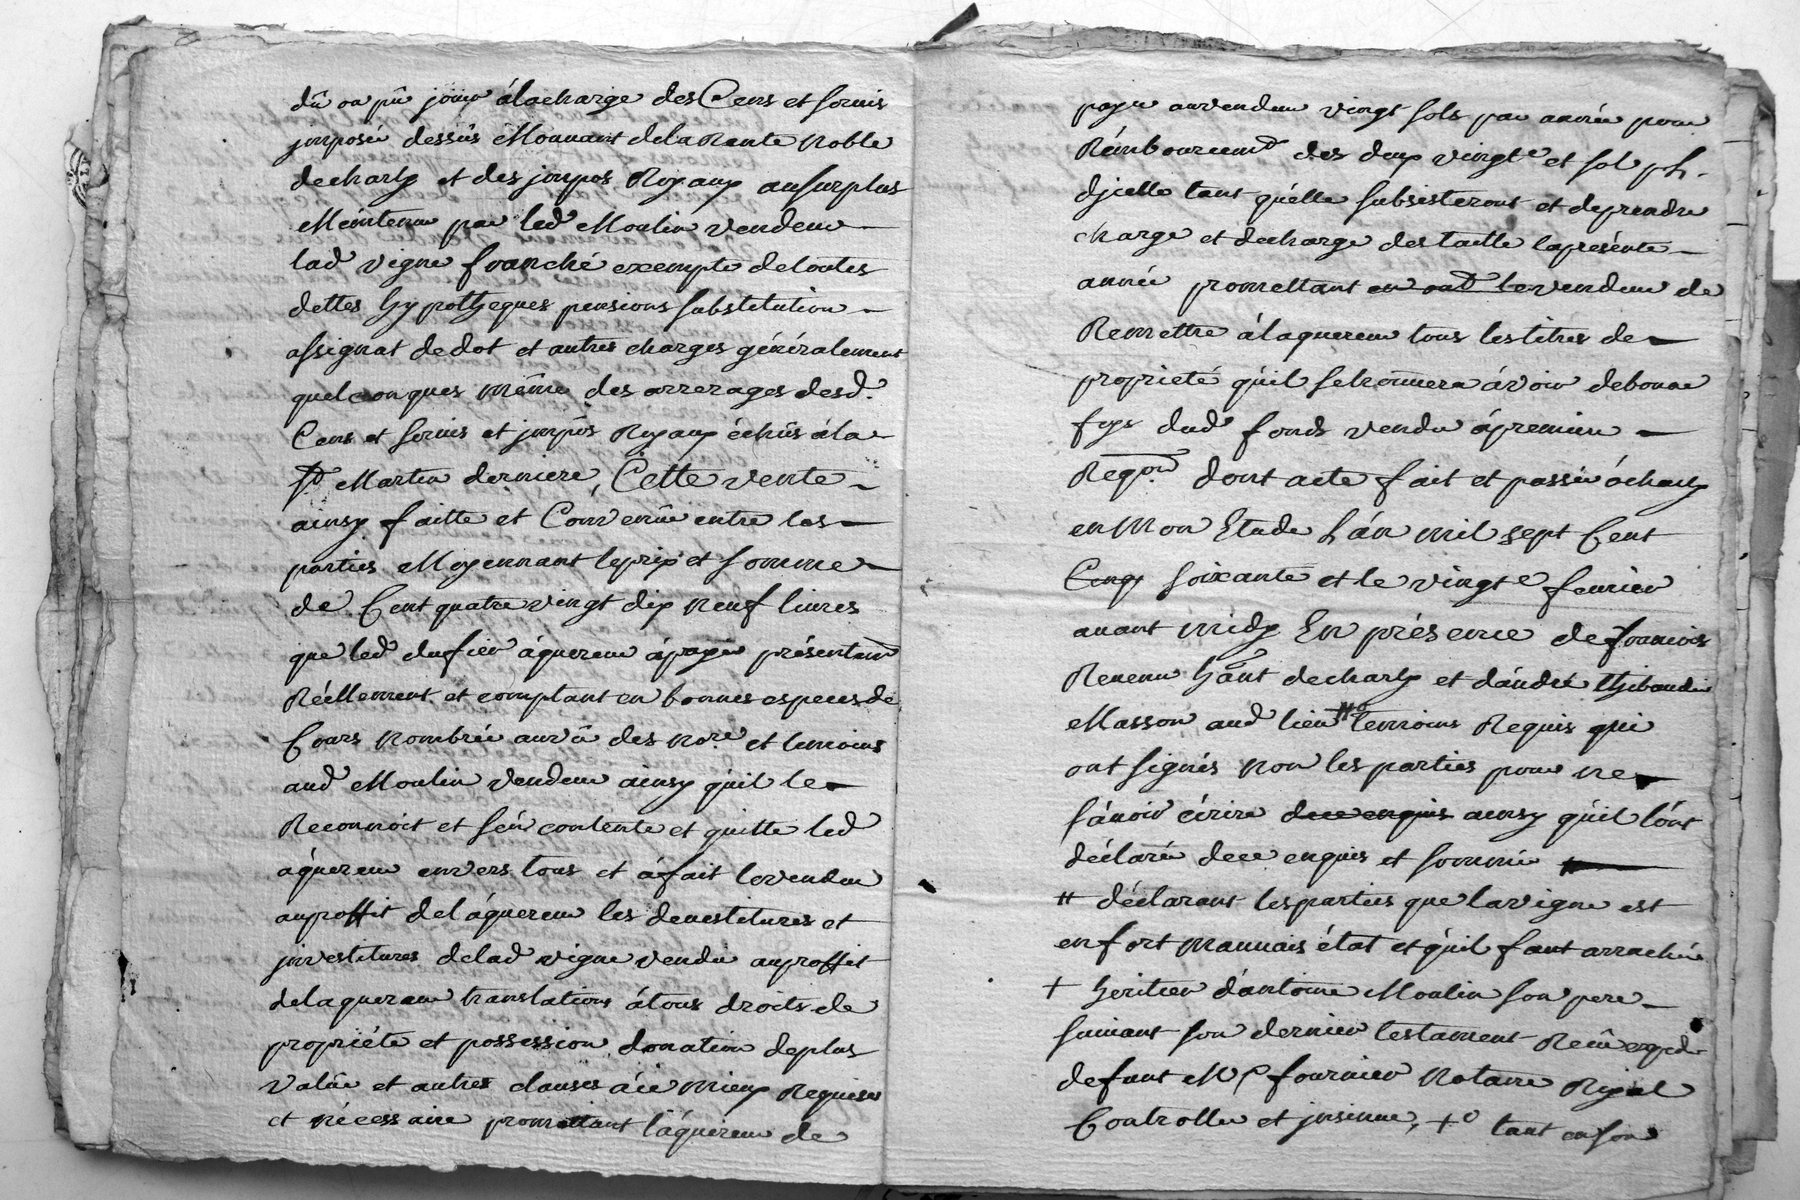 dû ou pû joüir á la charge des Cens et servis
jmposée dessüs Mouuant de la Rante Noble
de charly et des jmpos Royaux au surplus
Méintenu par led Moulin vendeur
lad vigne franche exempte de toutes
dettes hypotheques pensions substitution
assignat de dot et autres charges généralement
quelconques méme des arrerages desd.
Cens et servis et jmpós Royaux échüs á la
St Martin derniere, Cette vente
ainsy faitte et Convenüe entre les
parties Moyennant le prix et somme
de Cent quatre vingt dix neuf liures
que led áquereur á payé présentemt
Réellement et comptant en bonnes especes de
Cours nombrée au vû des no.re et temoins
aud Moulin vendeur ainsy quil le
Reconnoit et s'en contente et quitte led
áquereur envers tous et á fait le vendeur
au proffit de l'áquereur les deuestitures et
jnvestitures de lad vigne vendüe au proffit
de laquereur translations á tous droits de
propriéte et possession donation de plus
valüe et autres clauses á ce Mieux Requises
et nécessaire promettant l'áquereur de
payer au vendeur vingt sols par année pour
Rémbourcemt des deux vingte et sol ph.
djcelle tant quélle subsisteront et de prendre
charge et decharge des taille la présente
année promettant en outt le vendeur de
Remettre á laquereur tous les titres de
proprieté quil se trouuera ávoir de bonne
foys dud fonds vendu á premiere
Reqon dont acte fait et passée á charly
en Mon Etude L'an mil sept Cent
Cinq soixante et le vingte feurier
auant midy En présence de francois
Reuenu hant de charly et d'ándré thibaudier
Masson aud lieu #o temoins Requis qui
ont signés non les parties pour ne
sáuoir écrire de ce enquis ainsy quil lónt
déclaré de ce enquis et sommé
# déclarant les parties que la vigne est
en fort mauuais état et quil faut arracher
+ heritier d'ántoine Moulin son pere
suiuant son dernier testament Reçû
defunt Me fournier Notaire Royal
Controlle et jnsinue, +o tant en son